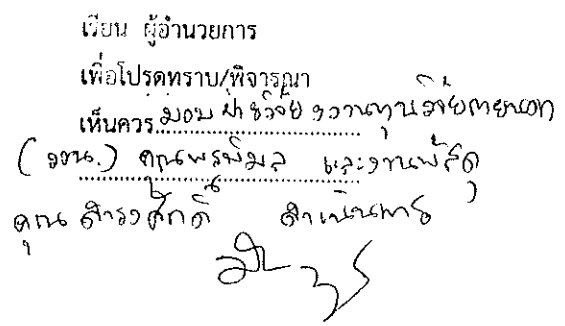 เรียน ผู้อำนวยการ
เพื่อโปรดทราบ/พิจารณา
เห็นควร มอบ ฝ่ายวิจัย งานทุนวิจัยภายนอก
คุณพรพิมล และงานพัสดุ
คุณ ดำรงศักดิ์ ดำเนินการ